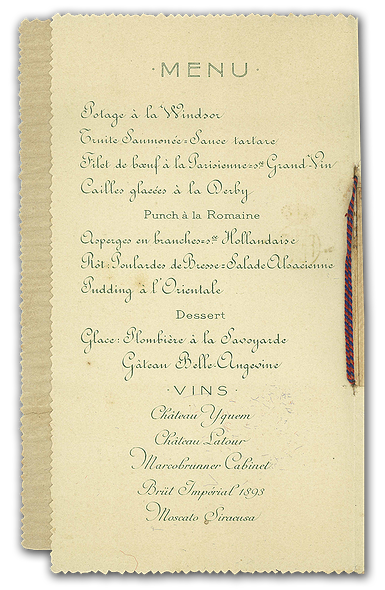 · MENU ·
Potage à la Windsor
Truite Saumonée=Sauce tartare
Filet de bœuf à la Parisienne=sce Grand-Vin
Cailles glacées à la Derby
Punch à la Romaine
Asperges en branches=sce Hollandaise
Rôt: Poulardes de Bresse=Salade Alsacienne
Pudding à l'Orientale
Dessert
Glace: Plombière à la Savoyarde
Gâteau Belle-Angevine
· VINS ·
Château Yquem
Château Latour
Marcobrunner Cabinet
Brüt Impérial 1893
Moscato Siracusa